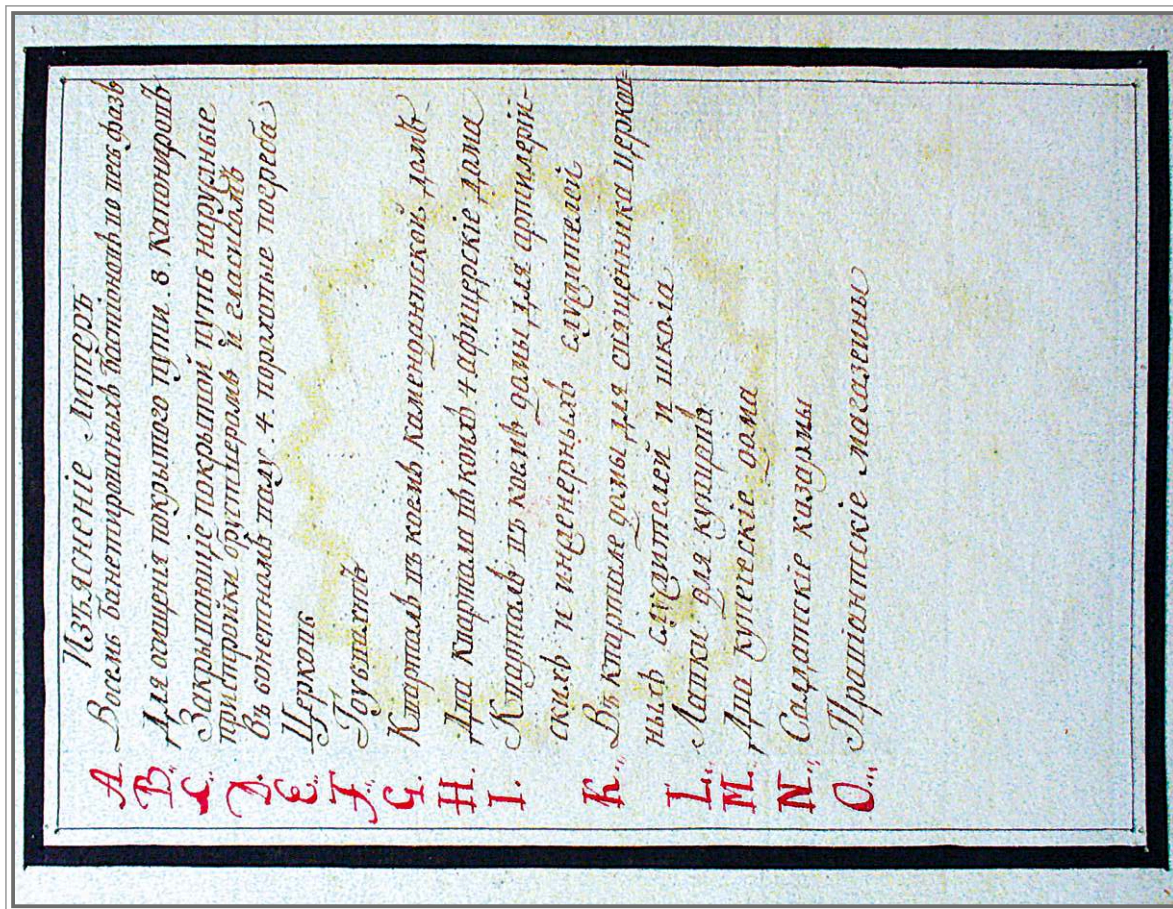 Изъясненіе Литеръ
A Восемь банетированыхъ бастіоновъ по весь фазъ
B. Для очищенія покрытого пути .8. Капонировъ
C. Закрывающіе покрытой путь наружные
пристройки бруствером и гласисомъ
D. Въ валу .4. пороховые погреба
E. Церковь
F. Гоубвахтъ
G. Кварталъ въ коемъ каменданткой домъ
H. Два квартала въ коихъ 4 афицерскіе дома
I. Кварталъ въ коемъ домы для артилерій-
скихъ и инженерныхъ служителей
K. Въ квартале домы для священника церков=
ныхъ служителей и школа
L. Лавки для купцовъ
M. Два купеческіе дома
N. Салдатскіе казармы
O. Правіантскіе магазеины